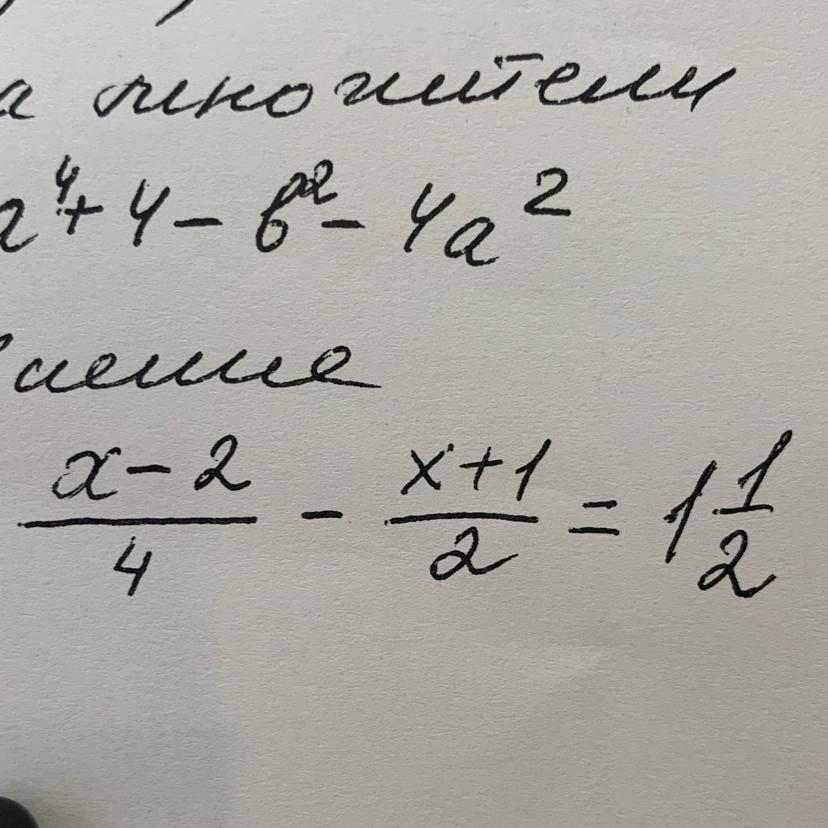 а множители
a⁴ + 4 - b² - 4a²
нение
(x-2)/4 - (x+1)/2 = 1 1/2